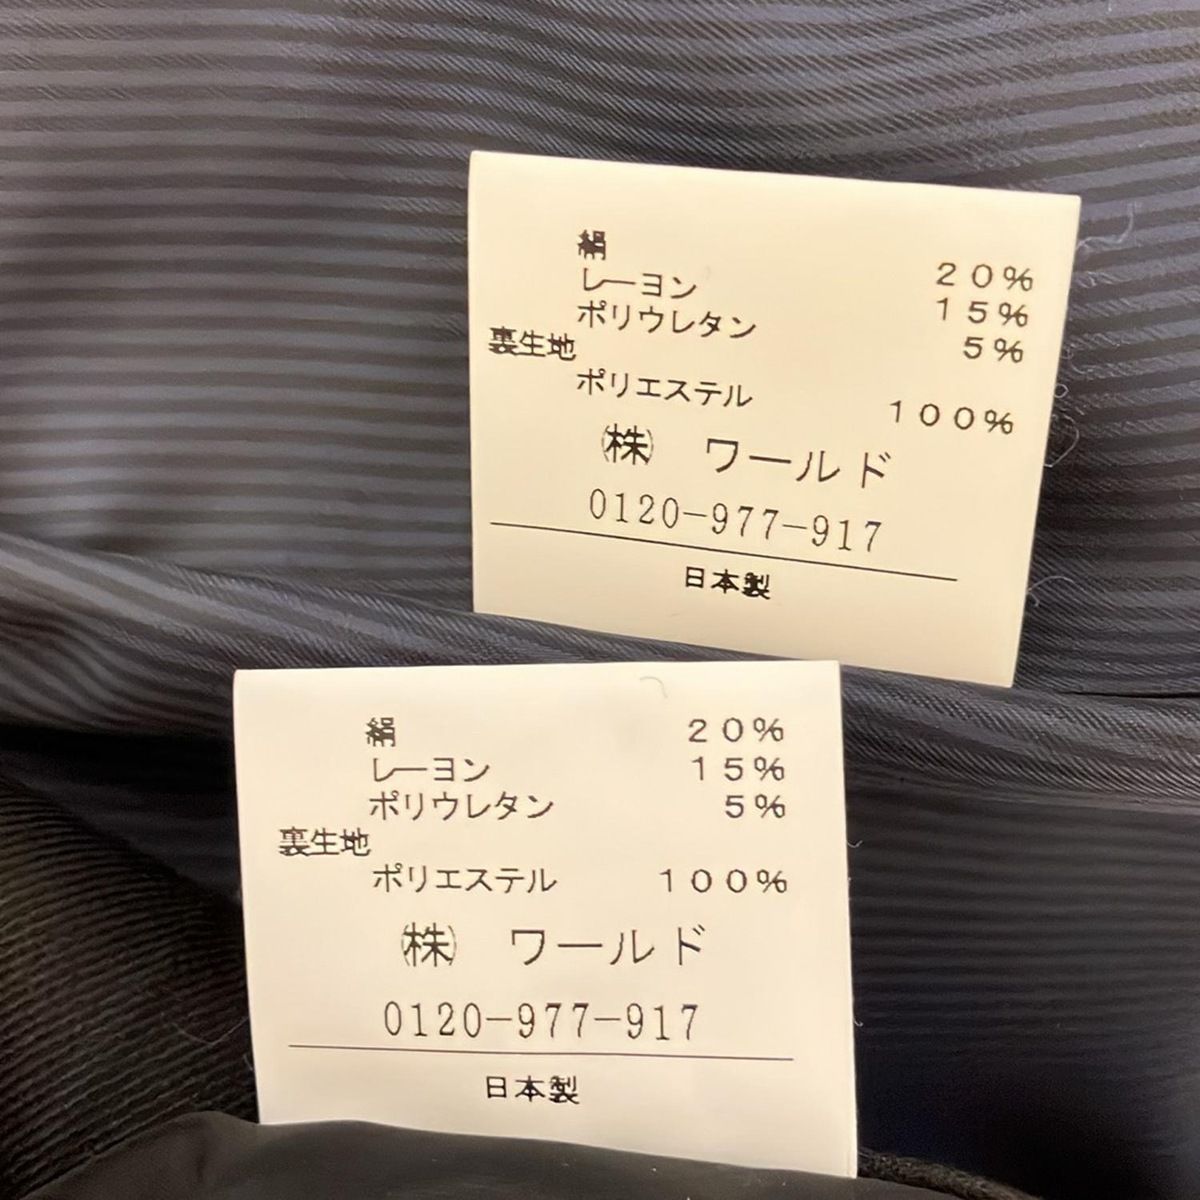 絹 20%
レーヨン 15%
ポリウレタン 5%
裏生地
ポリエステル 100%
㈱ ワールド
0120-977-917
日本製
絹 20%
レーヨン 15%
ポリウレタン 5%
裏生地
ポリエステル 100%
㈱ ワールド
0120-977-917
日本製